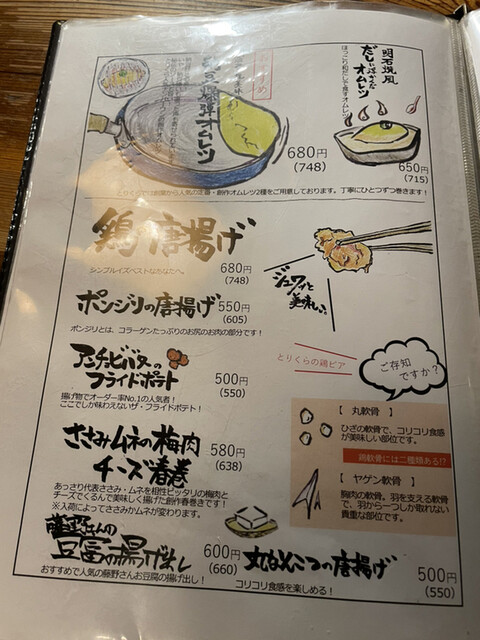 おすすめ
爆弾オムレツ
680円
(748)
明石焼風
だしに浮かぶ
オムレツ
ほっこり和だしで食すオムレツ
650円
(715)
とりくらで創業から人気の定番・創作オムレツ2種をご用意しております。丁寧にひとつずつ巻きます！
鶏唐揚げ
シンプルイズベストなあなたへ。
680円
(748)
ジュワッと
美味しい
ポンジリの唐揚げ 550円
(605)
ポンジリとは、コラーゲンたっぷりのお尻のお肉の部分です！
アンチョビバターの
フライドポテト
500円
(550)
揚げ物でオーダー率No.1の人気者！
ここでしか味わえないザ・フライドポテト！
とりくらの鶏ピア
ご存知
ですか？
【 丸軟骨 】
ひざの軟骨で、コリコリ食感
が美味しい部位です。
鶏軟骨には二種類ある!?
【 ヤゲン軟骨 】
胸肉の軟骨。羽を支える軟骨
で、羽から一つしか取れない
貴重な部位です。
ささみムネの梅肉
チーズ春巻
580円
(638)
あっさり代表ささみ・ムネを相性ピッタリの梅肉と
チーズでくるんで美味しく揚げた創作春巻きです！
※入荷によってささみかムネが変わります。
藤野さんの
豆富の揚げ出し
600円
(660)
おすすめで人気の藤野さんお豆腐の揚げ出し！
丸なんこつの唐揚げ
500円
(550)
コリコリ食感を楽しめる！